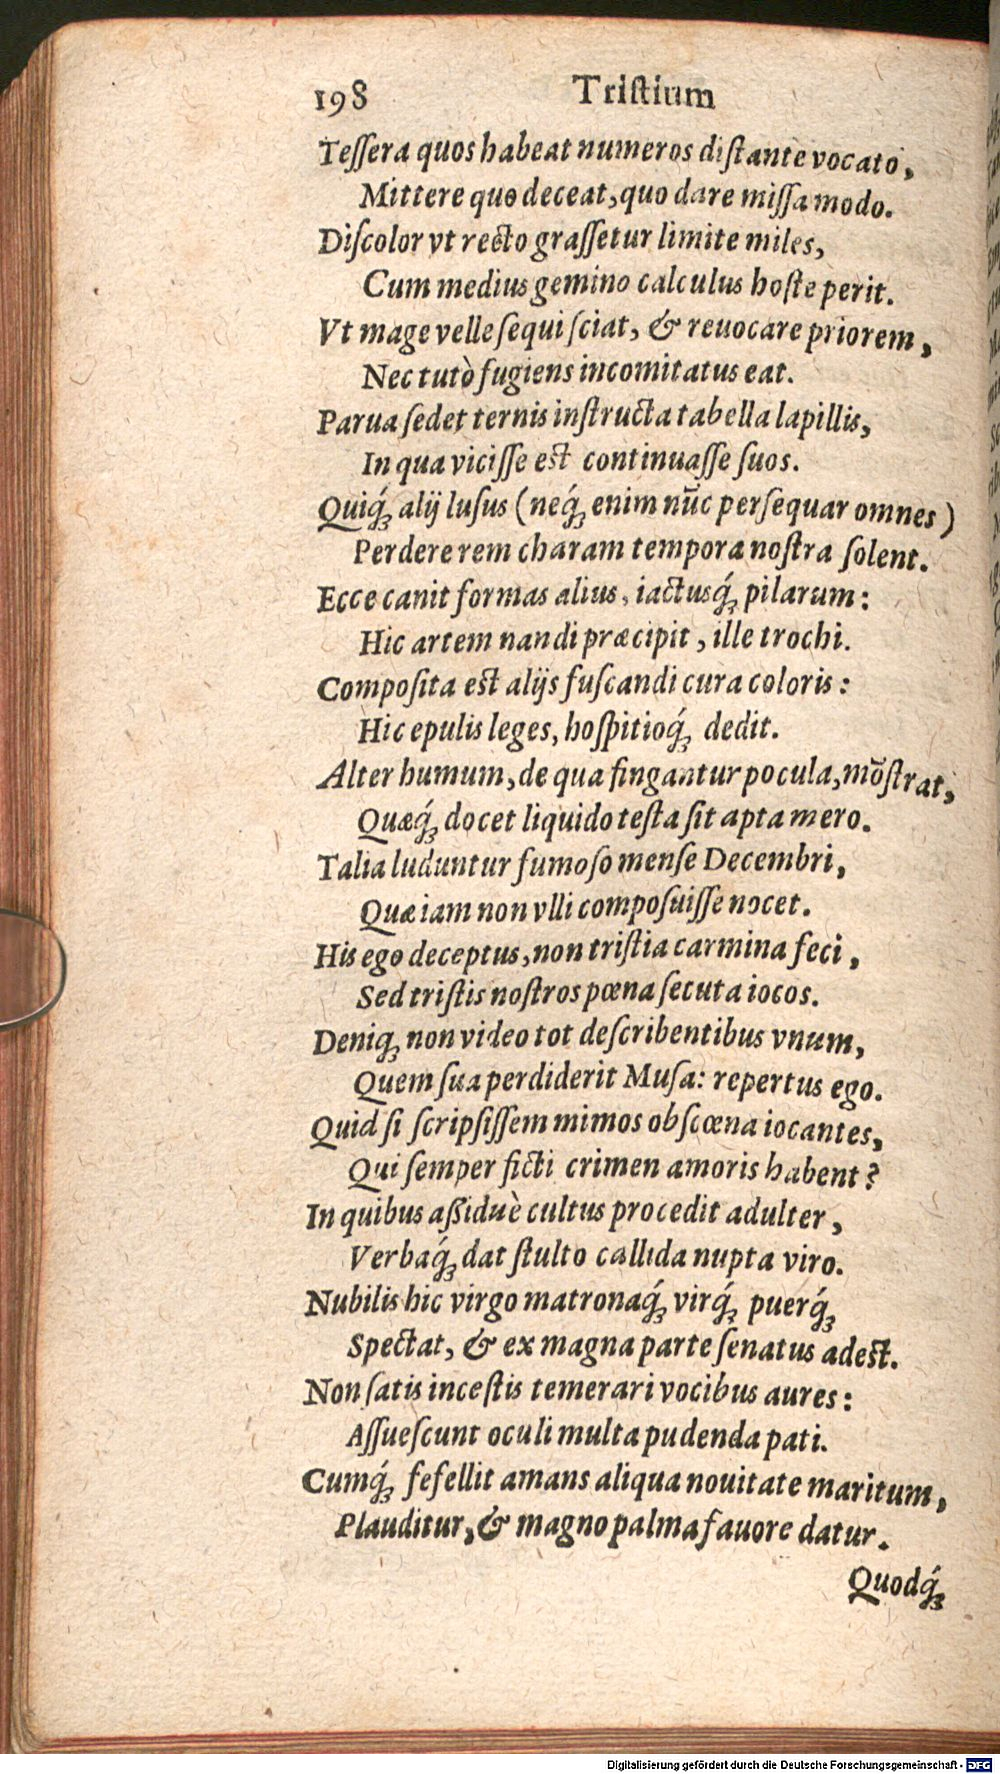 198 Tristium
Teſſera quos habeat numeros diſtante vocato,
Mittere quo deceat, quo dare miſſa modo.
Diſcolor vt recto graſſetur limite miles,
Cum medius gemino calculus hoſte perit.
Vt mage velle ſequi ſciat, & reuocare priorem,
Nec tutò fugiens incomitatus eat.
Parua ſedet ternis inſtructa tabella lapillis,
In qua viciſſe eſt continuaſſe ſuos.
Quiq́ꝫ alij luſus (neq́ꝫ enim nūc perſequar omnes)
Perdere rem charam tempora noſtra ſolent.
Ecce canit formas alius, iactusq́ꝫ pilarum:
Hic artem nandi præcipit, ille trochi.
Compoſita eſt alijs fuſcandi cura coloris:
Hic epulis leges, hoſpitioq́ꝫ dedit.
Alter humum, de qua fingantur pocula, mōſtrat,
Quæq́ꝫ docet liquido teſta ſit apta mero.
Talia luduntur fumoſo menſe Decembri,
Quæ iam non vlli compoſuiſſe nocet.
His ego deceptus, non triſtia carmina feci,
Sed triſtis noſtros pœna ſecuta iocos.
Deniqꝫ non video tot deſcribentibus vnum,
Quem ſua perdiderit Muſa: repertus ego.
Quid ſi ſcripſiſſem mimos obſcœna iocantes,
Qui ſemper ficti crimen amoris habent?
In quibus aßiduè cultus procedit adulter,
Verbaq́ꝫ dat ſtulto callida nupta viro.
Nubilis hic virgo matronaq́ꝫ virq́ꝫ puerq́ꝫ
Spectat, & ex magna parte ſenatus adeſt.
Non ſatis inceſtis temerari vocibus aures:
Aſſueſcunt oculi multa pudenda pati.
Cumq́ꝫ fefellit amans aliqua nouitate maritum,
Plauditur, & magno palma fauore datur.
Quodq́ꝫ
Digitalisierung gefördert durch die Deutsche Forschungsgemeinschaft - DFG